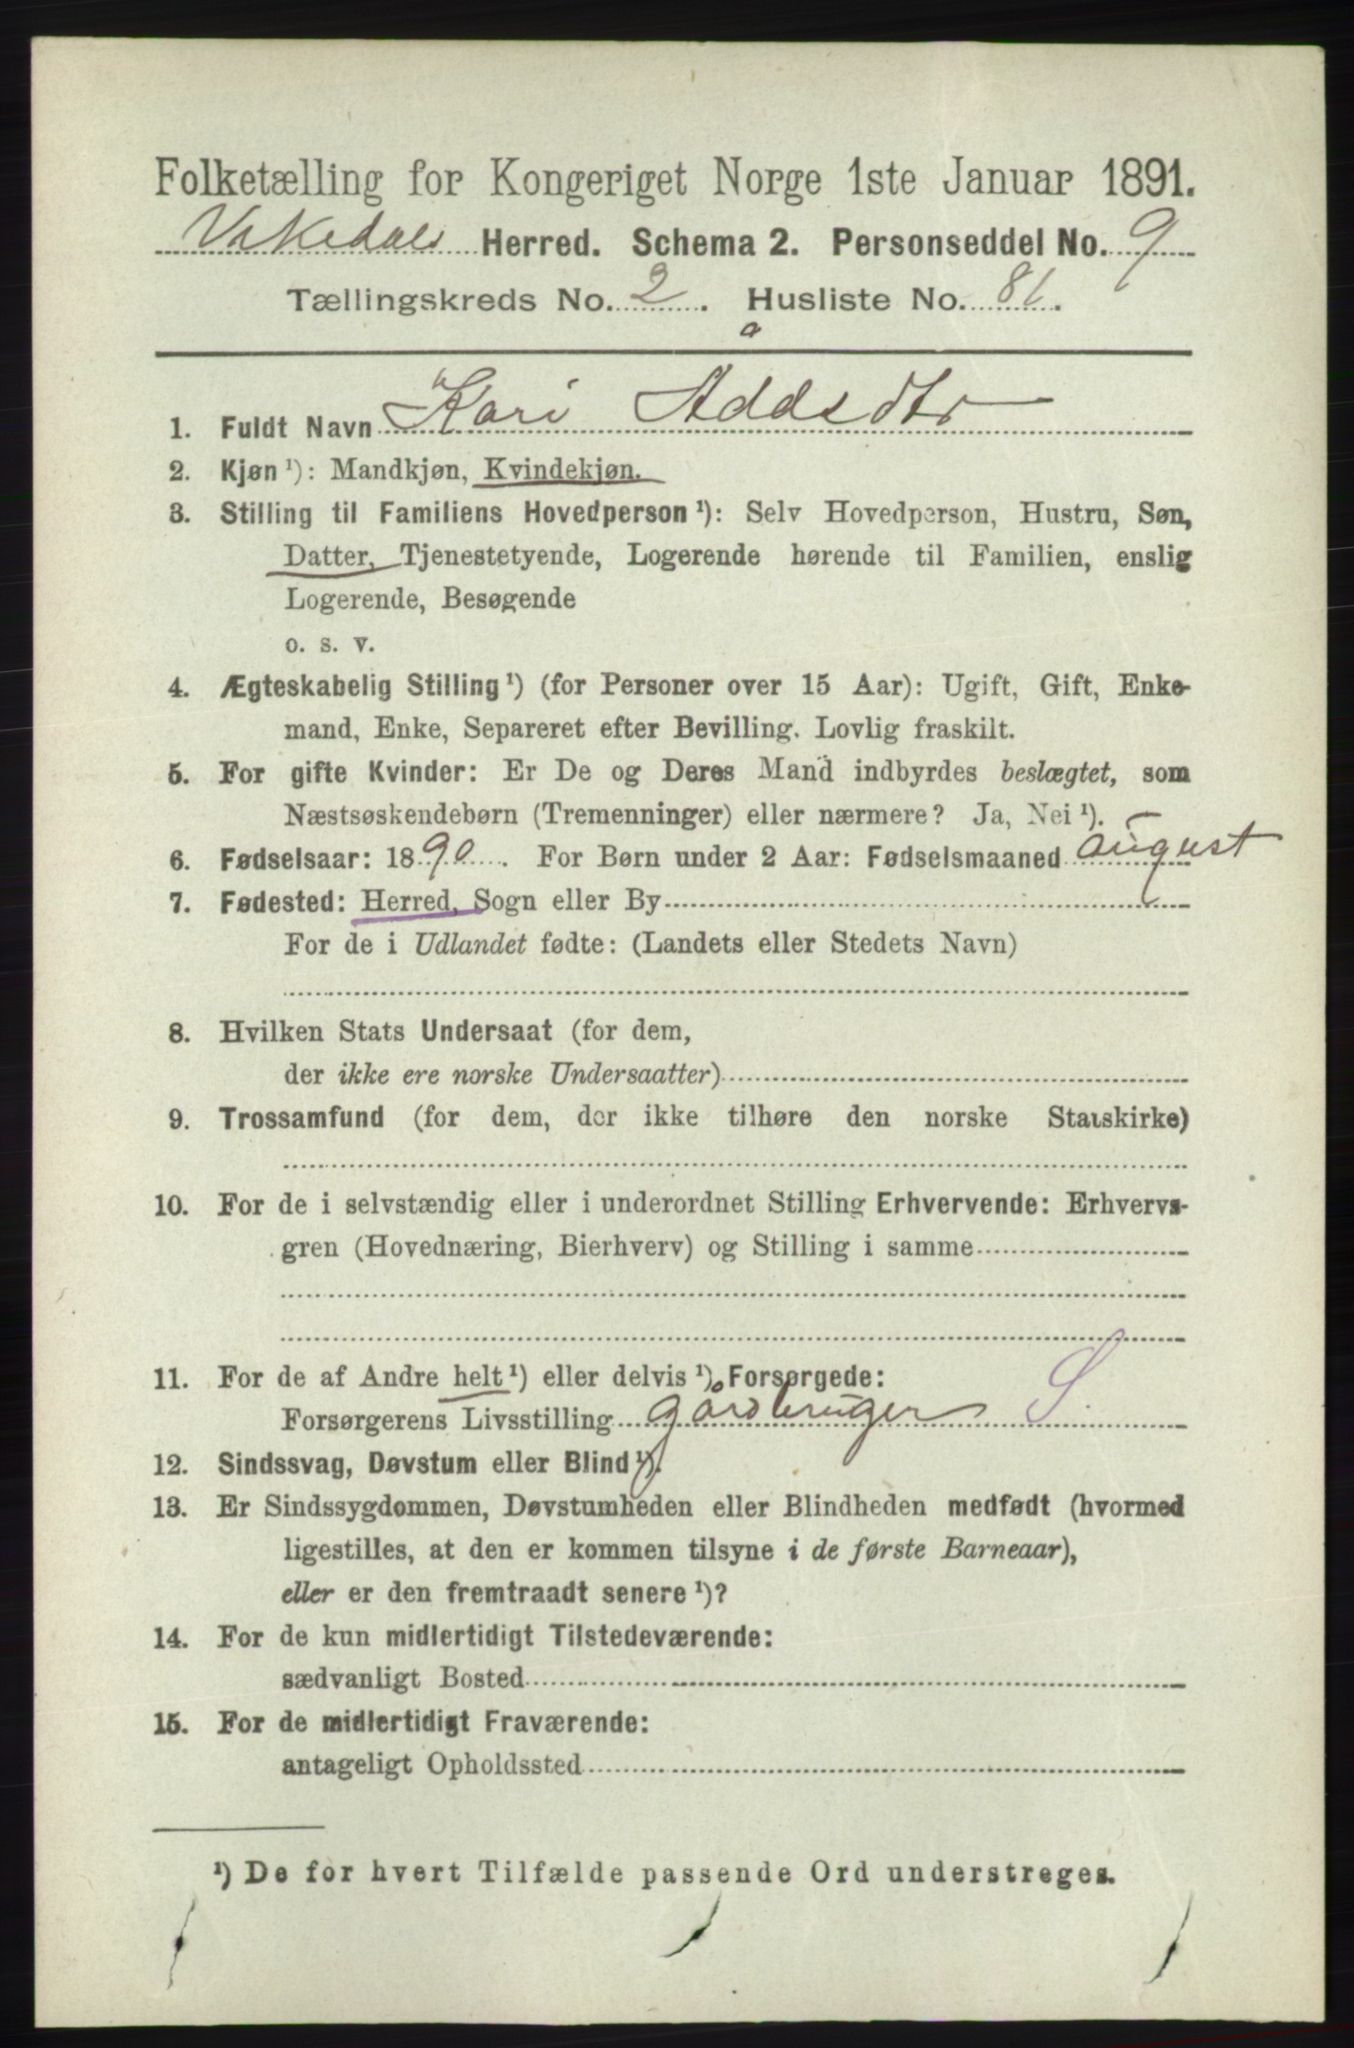 Folketælling for Kongeriget Norge 1ste Januar 1891.
Vikedals Herred. Schema 2. Personseddel No. 9
Tællingskreds No. 2. Husliste No. 81.
a
1. Fuldt Navn Kari Addsdtr
2. Kjøn ¹): Mandkjøn, Kvindekjøn.
3. Stilling til Familiens Hovedperson ¹): Selv Hovedperson, Hustru, Søn,
Datter, Tjenestetyende, Logerende hørende til Familien, enslig
Logerende, Besøgende
o. s. v.
4. Ægteskabelig Stilling ¹) (for Personer over 15 Aar): Ugift, Gift, Enke-
mand, Enke, Separeret efter Bevilling. Lovlig fraskilt.
5. For gifte Kvinder: Er De og Deres Mand indbyrdes beslægtet, som
Næstsøskendebørn (Tremenninger) eller nærmere? Ja, Nei ¹).
6. Fødselsaar: 1890. For Børn under 2 Aar: Fødselsmaaned august
7. Fødested: Herred, Sogn eller By
For de i Udlandet fødte: (Landets eller Stedets Navn)
8. Hvilken Stats Undersaat (for dem,
der ikke ere norske Undersaatter)
9. Trossamfund (for dem, der ikke tilhøre den norske Statskirke)
10. For de i selvstændig eller i underordnet Stilling Erhvervende: Erhvervs-
gren (Hovednæring, Bierhverv) og Stilling i samme
11. For de af Andre helt ¹) eller delvis ¹) Forsørgede:
Forsørgerens Livsstilling gårdbruger S.
12. Sindssvag, Døvstum eller Blind ¹).
13. Er Sindssygdommen, Døvstumheden eller Blindheden medfødt (hvormed
ligestilles, at den er kommen tilsyne i de første Barneaar),
eller er den fremtraadt senere ¹)?
14. For de kun midlertidigt Tilstedeværende:
sædvanligt Bosted
15. For de midlertidigt Fraværende:
antageligt Opholdssted
¹) De for hvert Tilfælde passende Ord understreges.